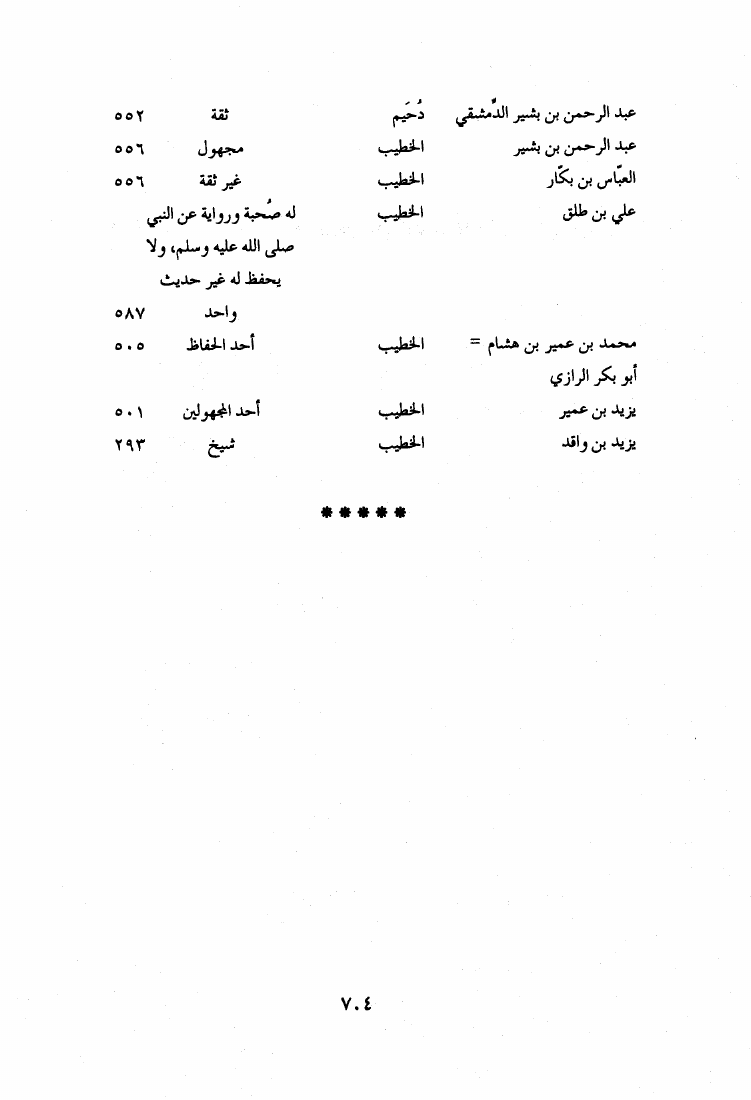 عبد الرحمن بن بشير الدِّمشقي دُحَيم ثقة ٥٥٢
عبد الرحمن بن بشير الخطيب مجهول ٥٥٦
العبّاس بن بكّار الخطيب غير ثقة ٥٥٦
علي بن طلق الخطيب له صُحبة ورواية عن النبي
صلى الله عليه وسلم، ولا
يحفظ له غير حديث
واحد ٥٨٧
محمد بن عمير بن هشام = الخطيب أحد الحفاظ ٥٠٥
أبو بكر الرازي
يزيد بن عمير الخطيب أحد المجهولين ٥٠١
يزيد بن واقد الخطيب شيخ ٢٩٣
*****
٧٠٤